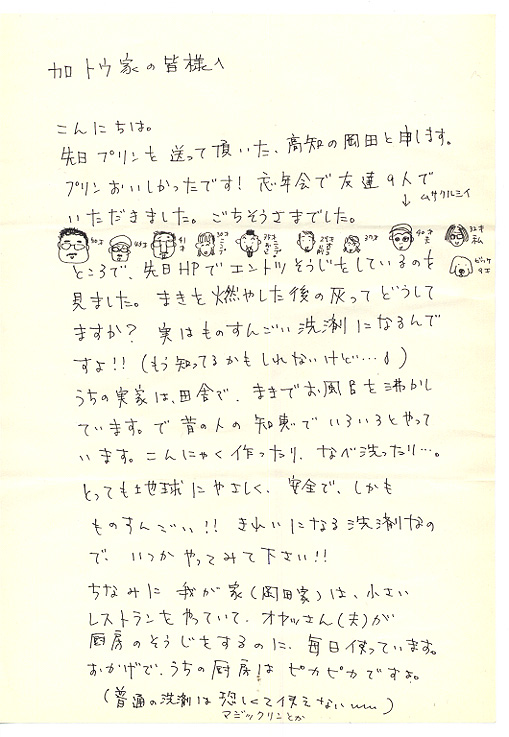 加トウ家の皆様へ
こんにちは。
先日プリンを送って頂いた、高知の岡田と申します。
プリンおいしかったです! 忘年会で友達9人で
→ムサクルシイ
いただきました。ごちそうさまでした。
ところで、先日HPでエントツそうじをしているのを
見ました。まきを燃やした後の灰ってどうして
ますか? 実はものすんごい洗剤になるんで
すよ!! (もう知ってるかもしれないけど…)
うちの実家は、田舎で、まきでお風呂を沸かし
ています。で昔の人の知恵でいろいろとやって
います。こんにゃく作ったり、なべ洗ったり…。
とっても地球にやさしく、安全で、しかも
ものすんごい!! きれいになる洗剤なの
で、いつかやってみて下さい!!
ちなみに我が家(岡田家)は、小さい
レストランをやっていて、オヤッさん(夫)が
厨房のそうじをするのに、毎日使っています。
おかげで、うちの厨房はピカピカですよ。
(普通の洗剤は恐しくて使えない)
マジックリンとか